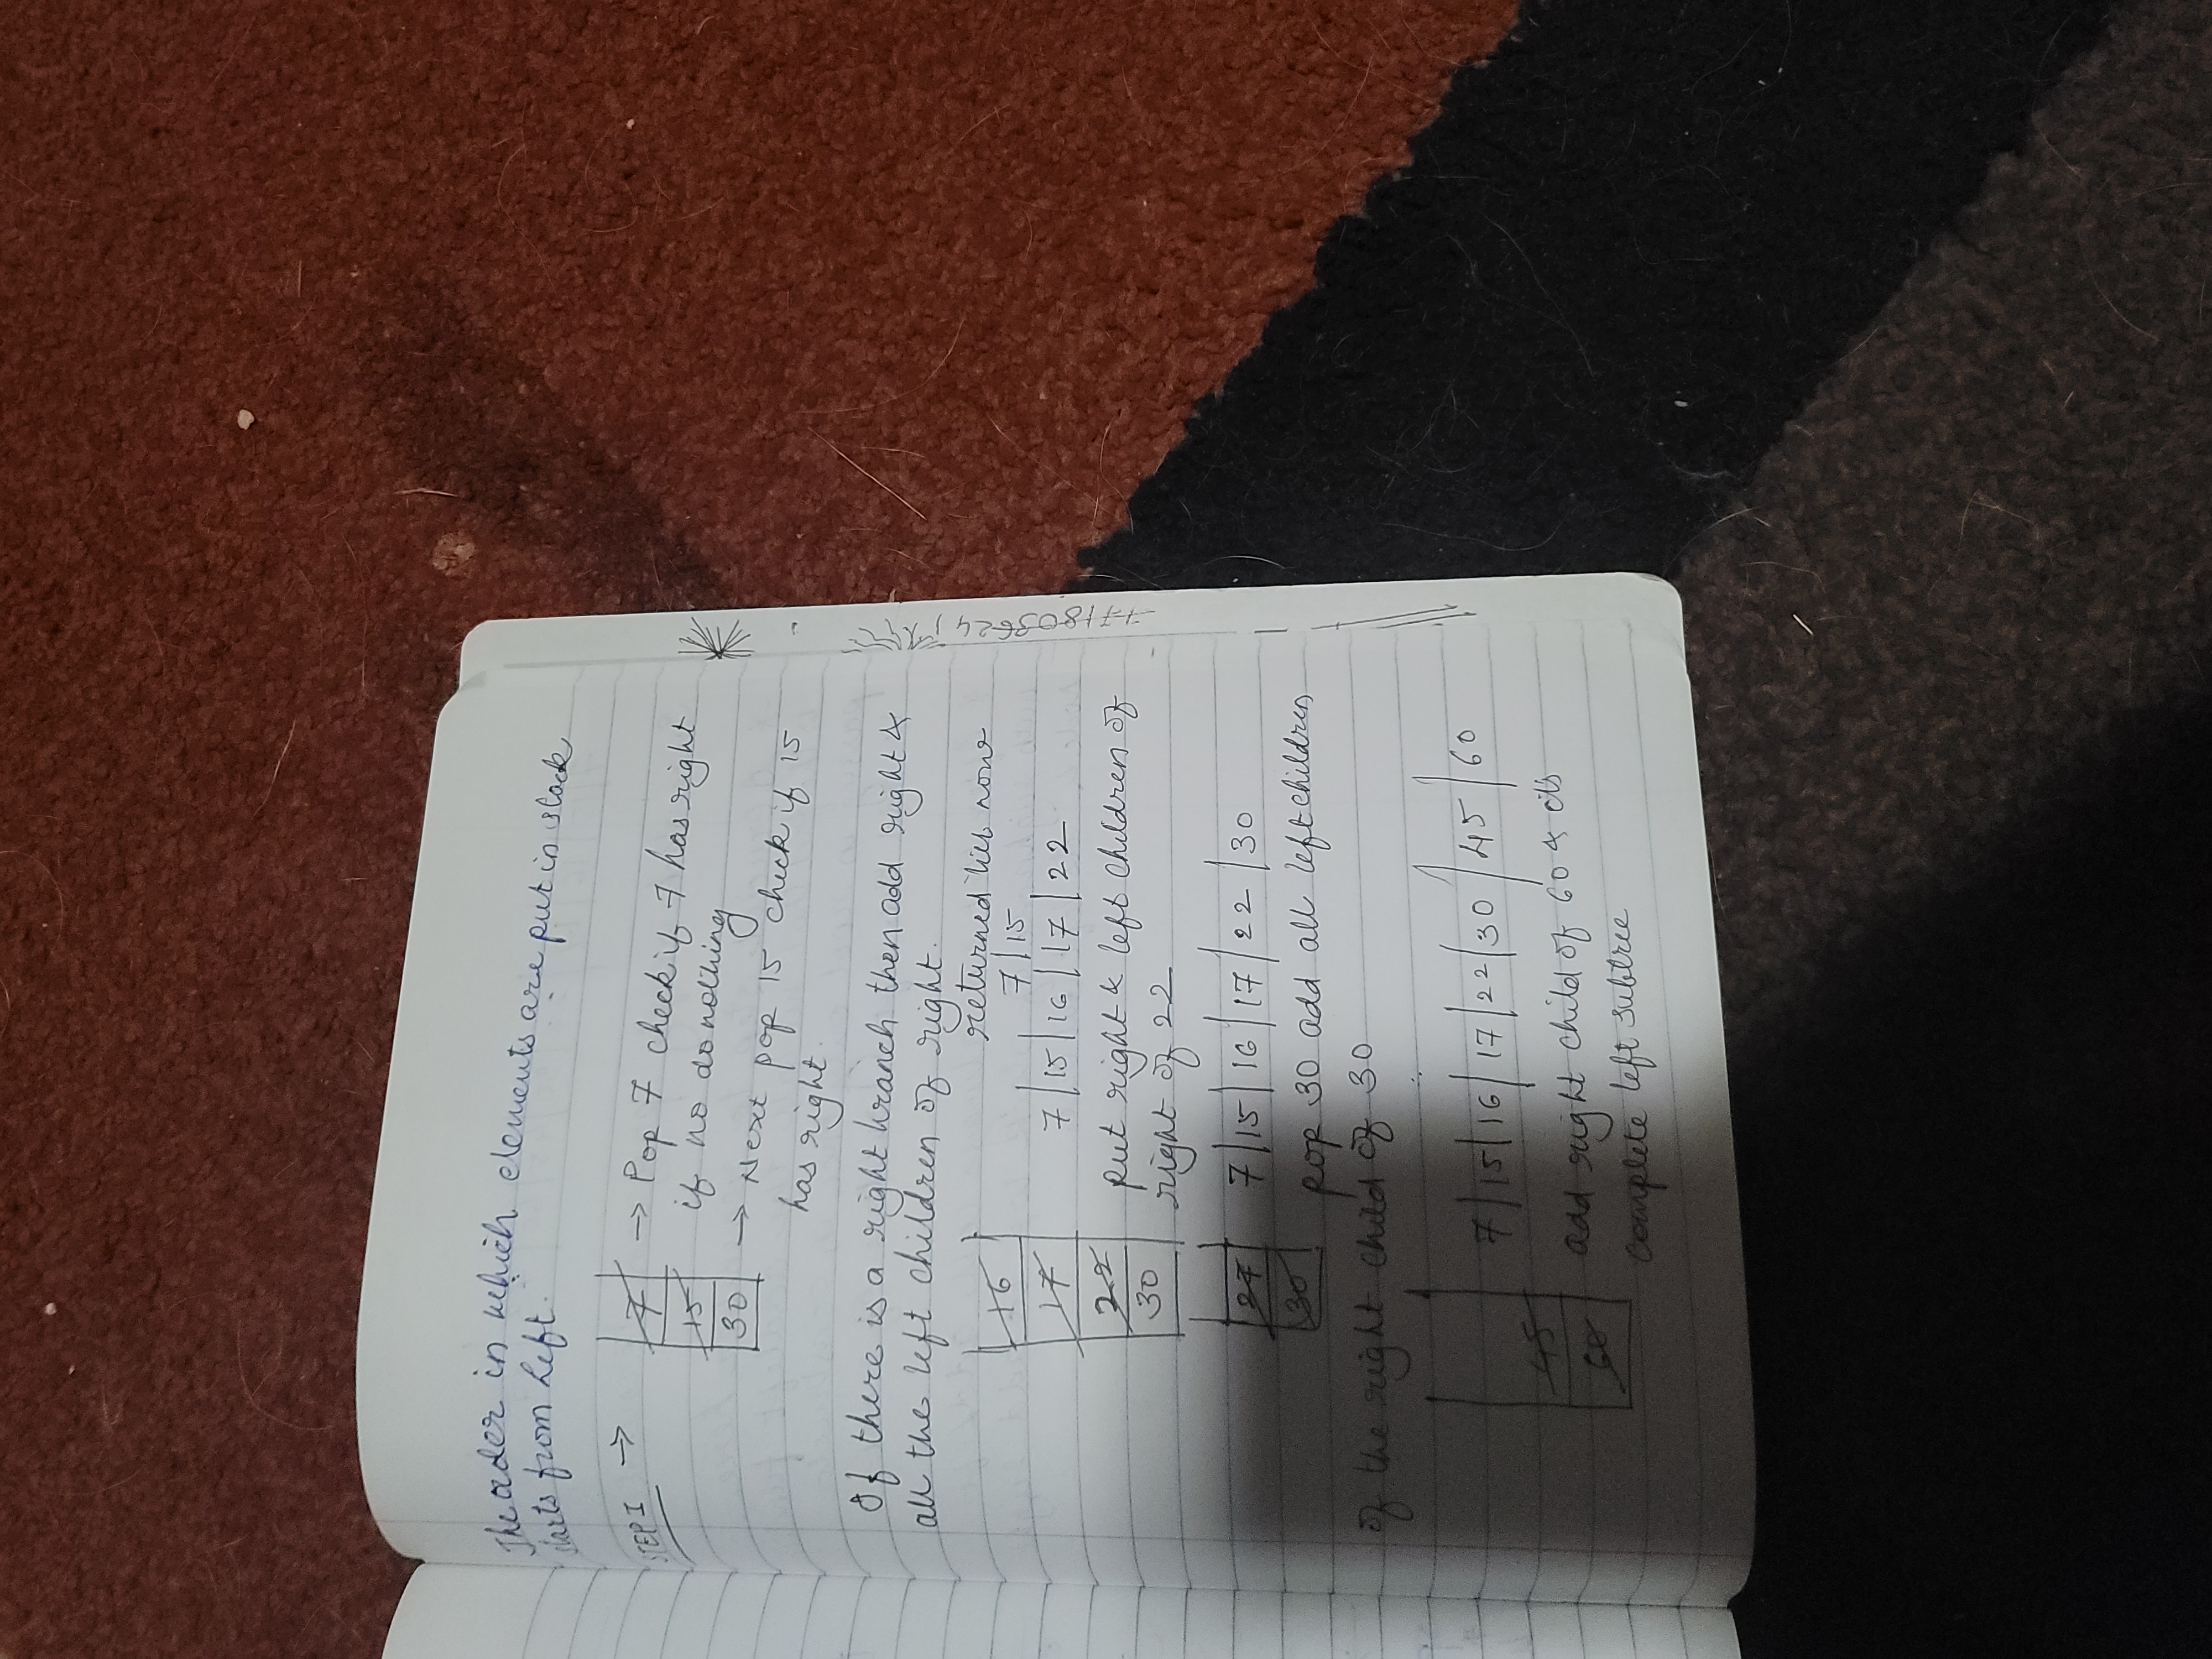 The order in which elements are put in stack
starts from Left.
STEP I → 7 → Pop 7 check if 7 has right
15 if no do nothing
30 → Next pop 15 check if 15
has right.
If there is a right branch then add right &
all the left children of right.
returned till now
16 7 | 15
17 7 | 15 | 16 | 17 | 22
22 put right & left children of
30 right of 22
27 7 | 15 | 16 | 17 | 22 | 30
30 pop 30 add all left children
of the right child of 30
7 | 15 | 16 | 17 | 22 | 30 | 45 | 60
45 add right child of 60 & its
60 complete left subtree